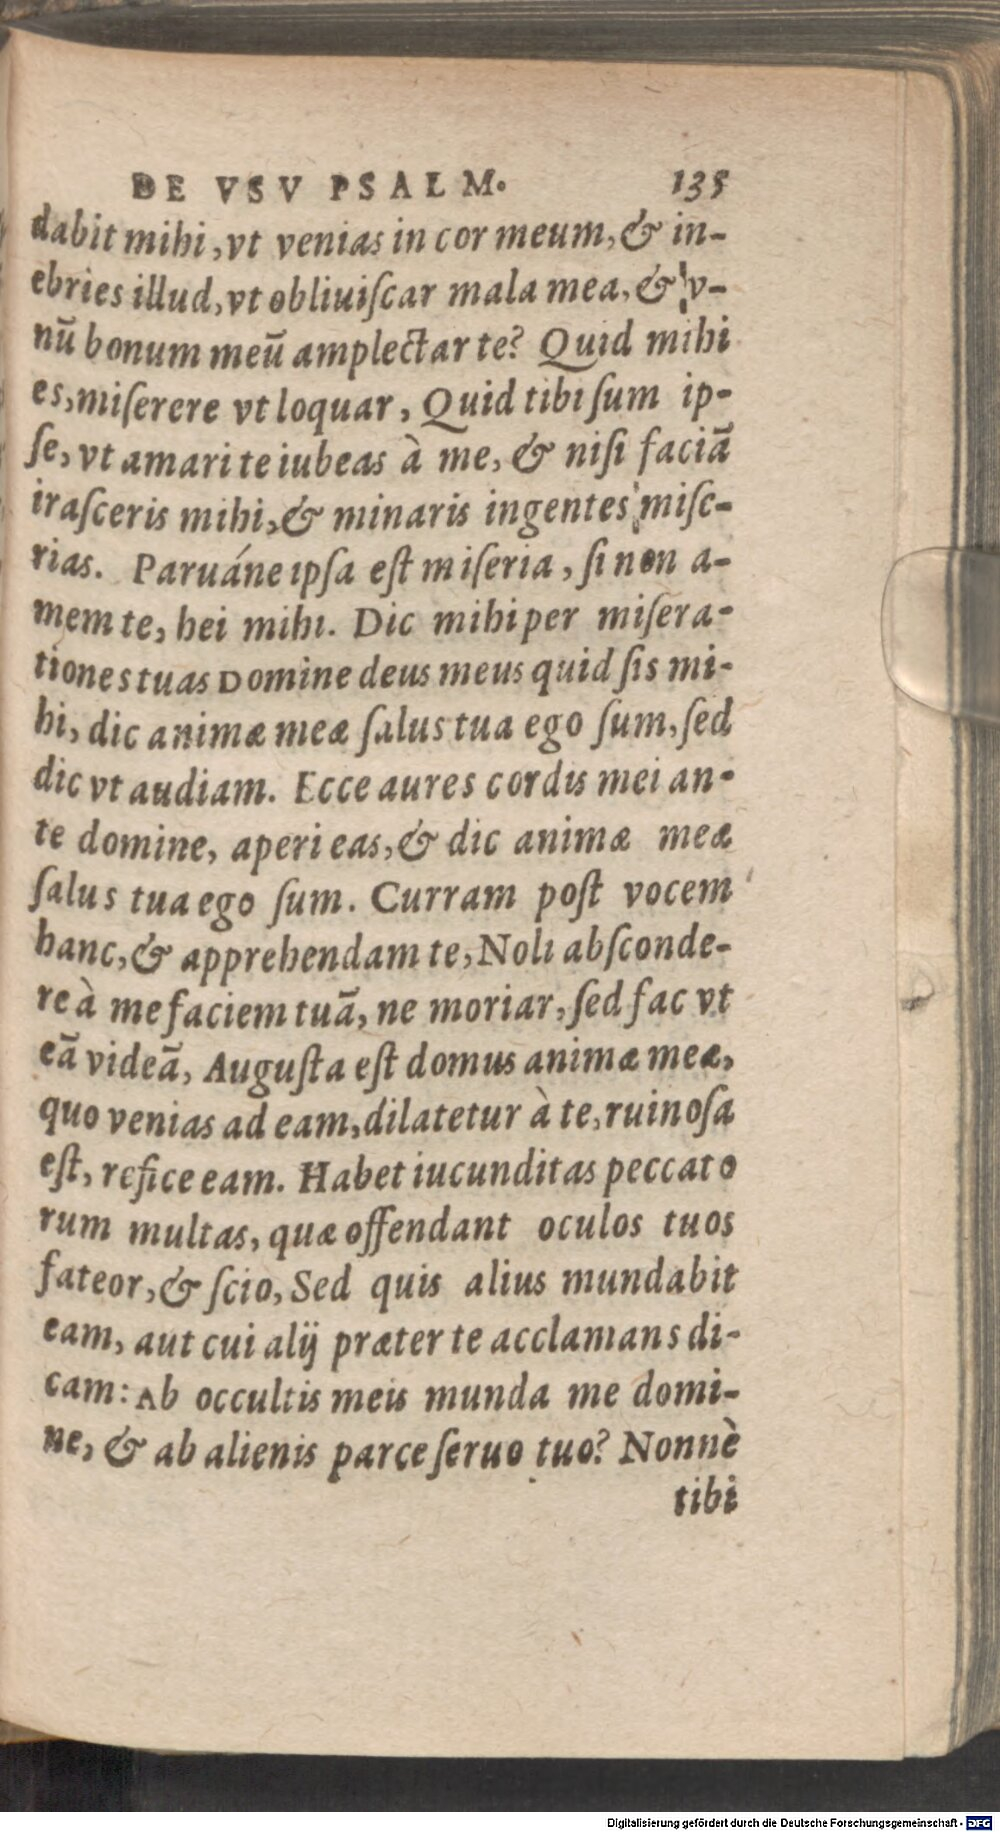 DE VSV PSALM. 135
dabit mihi, vt venias in cor meum, & in-
ebries illud, vt obliuiſcar mala mea, & v-
nū bonum meū amplectar te? Quid mihi
es, miſerere vt loquar, Quid tibi ſum ip-
ſe, vt amari te iubeas à me, & niſi faciā
iraſceris mihi, & minaris ingentes miſe-
rias. Paruáne ipſa eſt miſeria, ſi non a-
mem te, hei mihi. Dic mihi per miſera-
tiones tuas Domine deus meus quid ſis mi-
hi, dic animæ meæ ſalus tua ego ſum, ſed
dic vt audiam. Ecce aures cordis mei an-
te domine, aperi eas, & dic animæ meæ
ſalus tua ego ſum. Curram poſt vocem
hanc, & apprehendam te, Noli abſconde-
re à me faciem tuā, ne moriar, ſed fac vt
eā videā, Auguſta eſt domus animæ meæ,
quo venias ad eam, dilatetur à te, ruinoſa
eſt, refice eam. Habet iucunditas peccato
rum multas, quæ offendant oculos tuos
fateor, & ſcio, Sed quis alius mundabit
eam, aut cui alij præter te acclamans di-
cam: Ab occultis meis munda me domi-
ne, & ab alienis parce ſeruo tuo? Nonnè
tibi
Digitalisierung gefördert durch die Deutsche Forschungsgemeinschaft - DFG